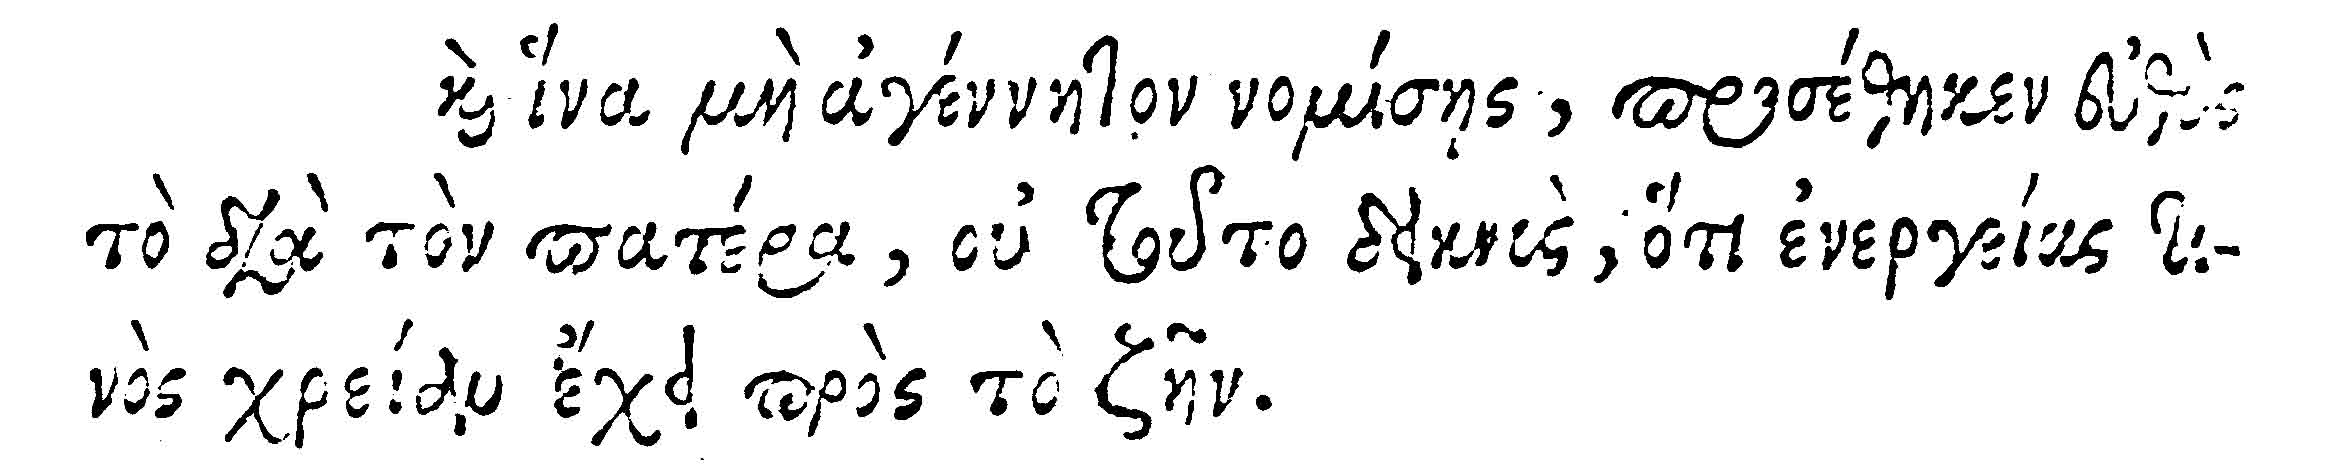 καὶ ἵνα μὴ ἀγέννητον νομίσῃς, προσέθηκεν εὐθὺς
τὸ διὰ τὸν πατέρα, οὐ τοῦτο δεικνὺς, ὅτι ἐνεργείας τι-
νὸς χρείαν ἔχει πρὸς τὸ ζῆν.